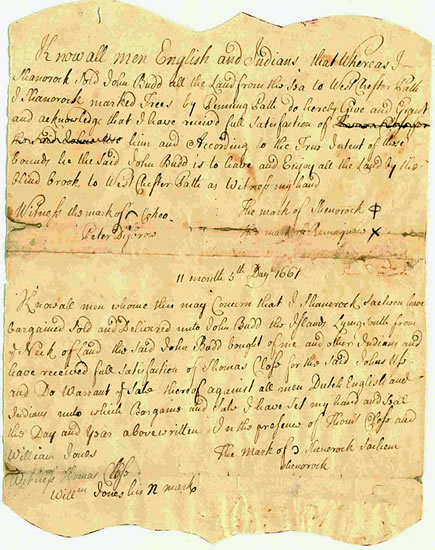 Know all men English and Indians that Whereas I
Shanorock Sold John Budd all the Land from the Sea to Westchester Path
I Shanorock marked Trees by Penning Path do hereby Give and Grant
and acknowledge that I have received full Satisfaction of
him and According to the True Intent of these
bounds he the said John Budd is to have and Enjoy all the Land by the
blind brook to West Chester Path as Witness my hand
Witness the mark of Cokeo The mark of Shenorock
Peter Disbrow The mark of Remaquaie X
11 month 5th Day 1661
Know all men whome this may Concern that I Shanorock Sachem have
bargained Sold and Delivered unto John Budd the Islands Lyng South from
ye Neck of Land the said John Budd bought of me and other Indians and
have received full Satisfaction of Thomas Close for the said Johns Use
and Do Warant ye Sale thereof against all men Dutch English and
Indians unto which Bargane and Sale I have Set my hand and Seal
the Day and Year above written In the presence of Thomas Close and
William Jones The Mark of Shenorock Sachem
Shenorock
Witness Thomas Close
Willm Jones his n mark